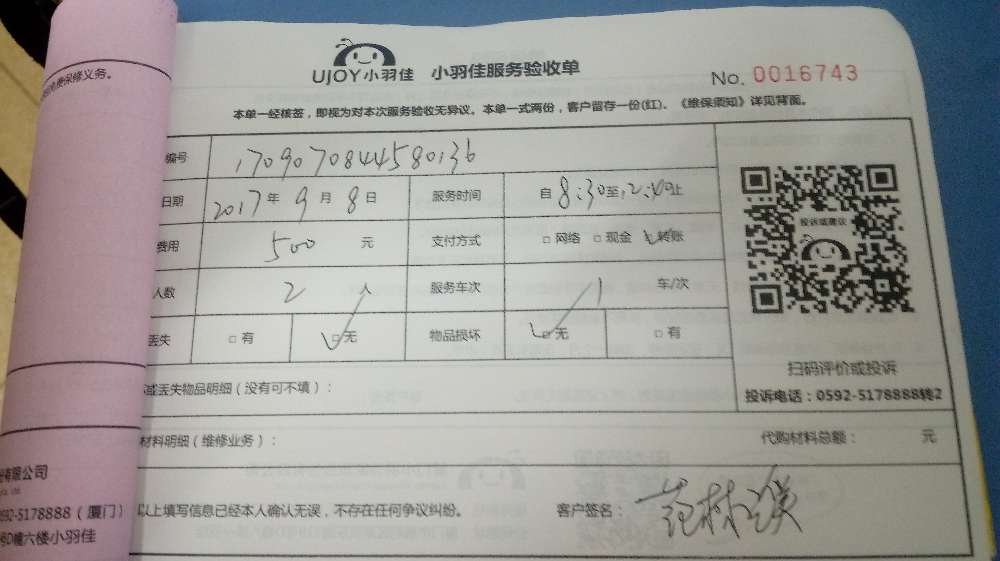 免费保修义务。
UJOY小羽佳 小羽佳服务验收单
No. 0016743
本单一经核签，即视为对本次服务验收无异议。本单一式两份，客户留存一份(红)、《维保须知》详见背面。
编号 1709070844580136
日期 2017年9月8日 服务时间 自8:30至12:40止
投诉或建议
费用 500 元 支付方式 □网络 □现金 转账
人数 2人 服务车次 1 车/次
丢失 □有 □无 物品损坏 □无 □有
扫码评价或投诉
或丢失物品明细（没有可不填）：
投诉电话：0592-5178888转2
材料明细（维修业务）： 代购材料总额： 元
份有限公司
0592-5178888（厦门）
号D幢六楼小羽佳
以上填写信息已经本人确认无误，不存在任何争议纠纷。 客户签名： 范林瑛